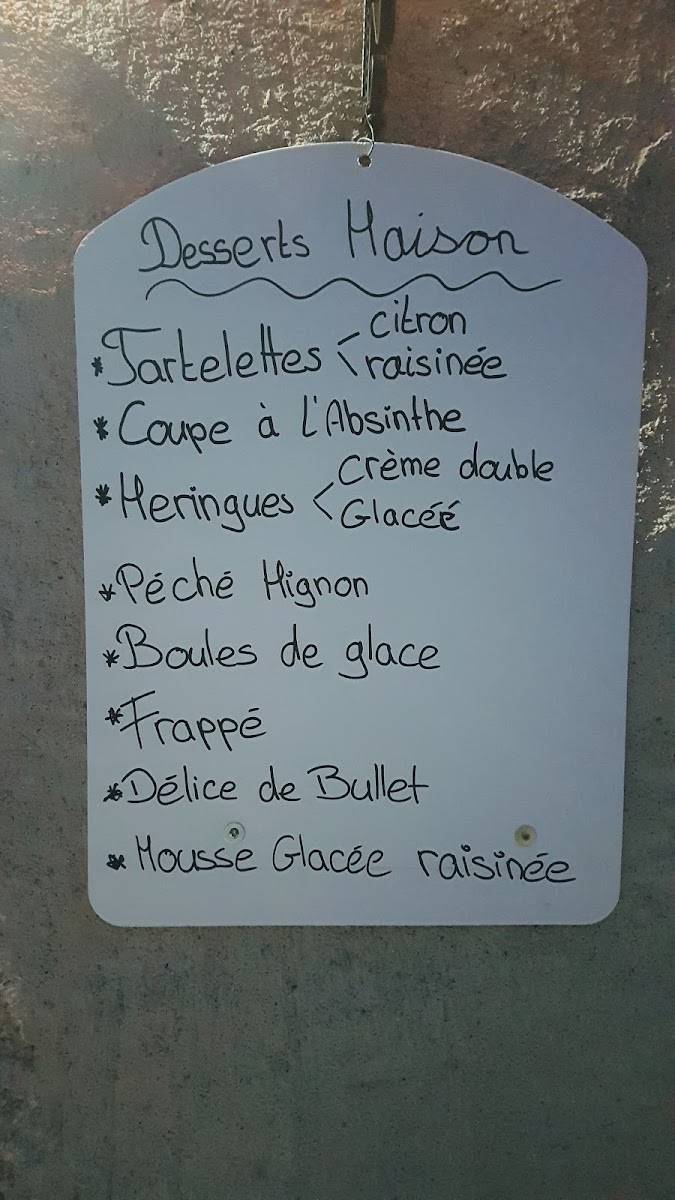 Desserts Maison
* Tartelettes < citron
raisinée
* Coupe à l'Absinthe
* Meringues < Crème double
Glacéé
* Péché Mignon
* Boules de glace
* Frappé
* Délice de Bullet
* Mousse Glacée raisinée